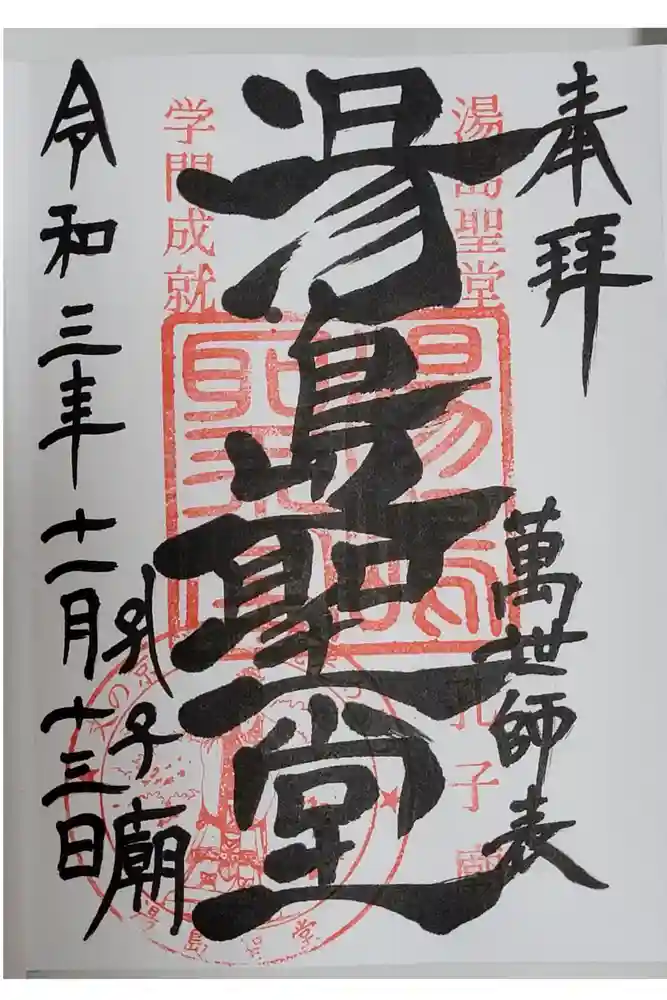 奉拝
萬世師表
湯島聖堂
孔子廟
湯島聖堂
学門成就
孔子廟
令和三年十一月十三日
湯島聖堂